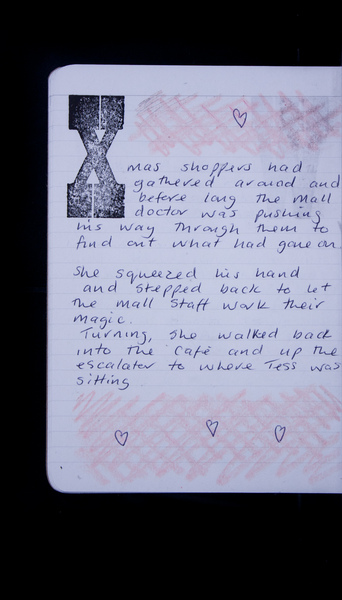 Xmas shoppers had
gathered around and
before long the mall
doctor was pushing
his way through them to
find out what had gone on
She squeezed his hand
and stepped back to let
the mall staff work their
magic.
Turning, she walked back
into the café and up the
escalator to where Tess was
sitting